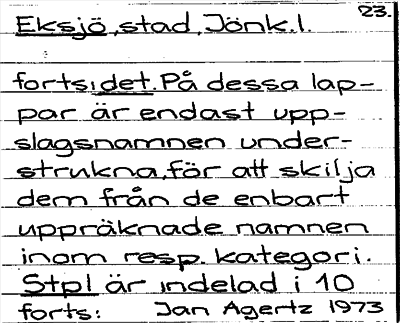 23.
Eksjö, stad, Jönk.l.
forts: det. På dessa lap-
par är endast upp-
slagsnamnen under-
strukna, för att skilja
dem från de enbart
uppräknade namnen
inom resp. kategori.
Stpl är indelad i 10
forts: Jan Agertz 1973